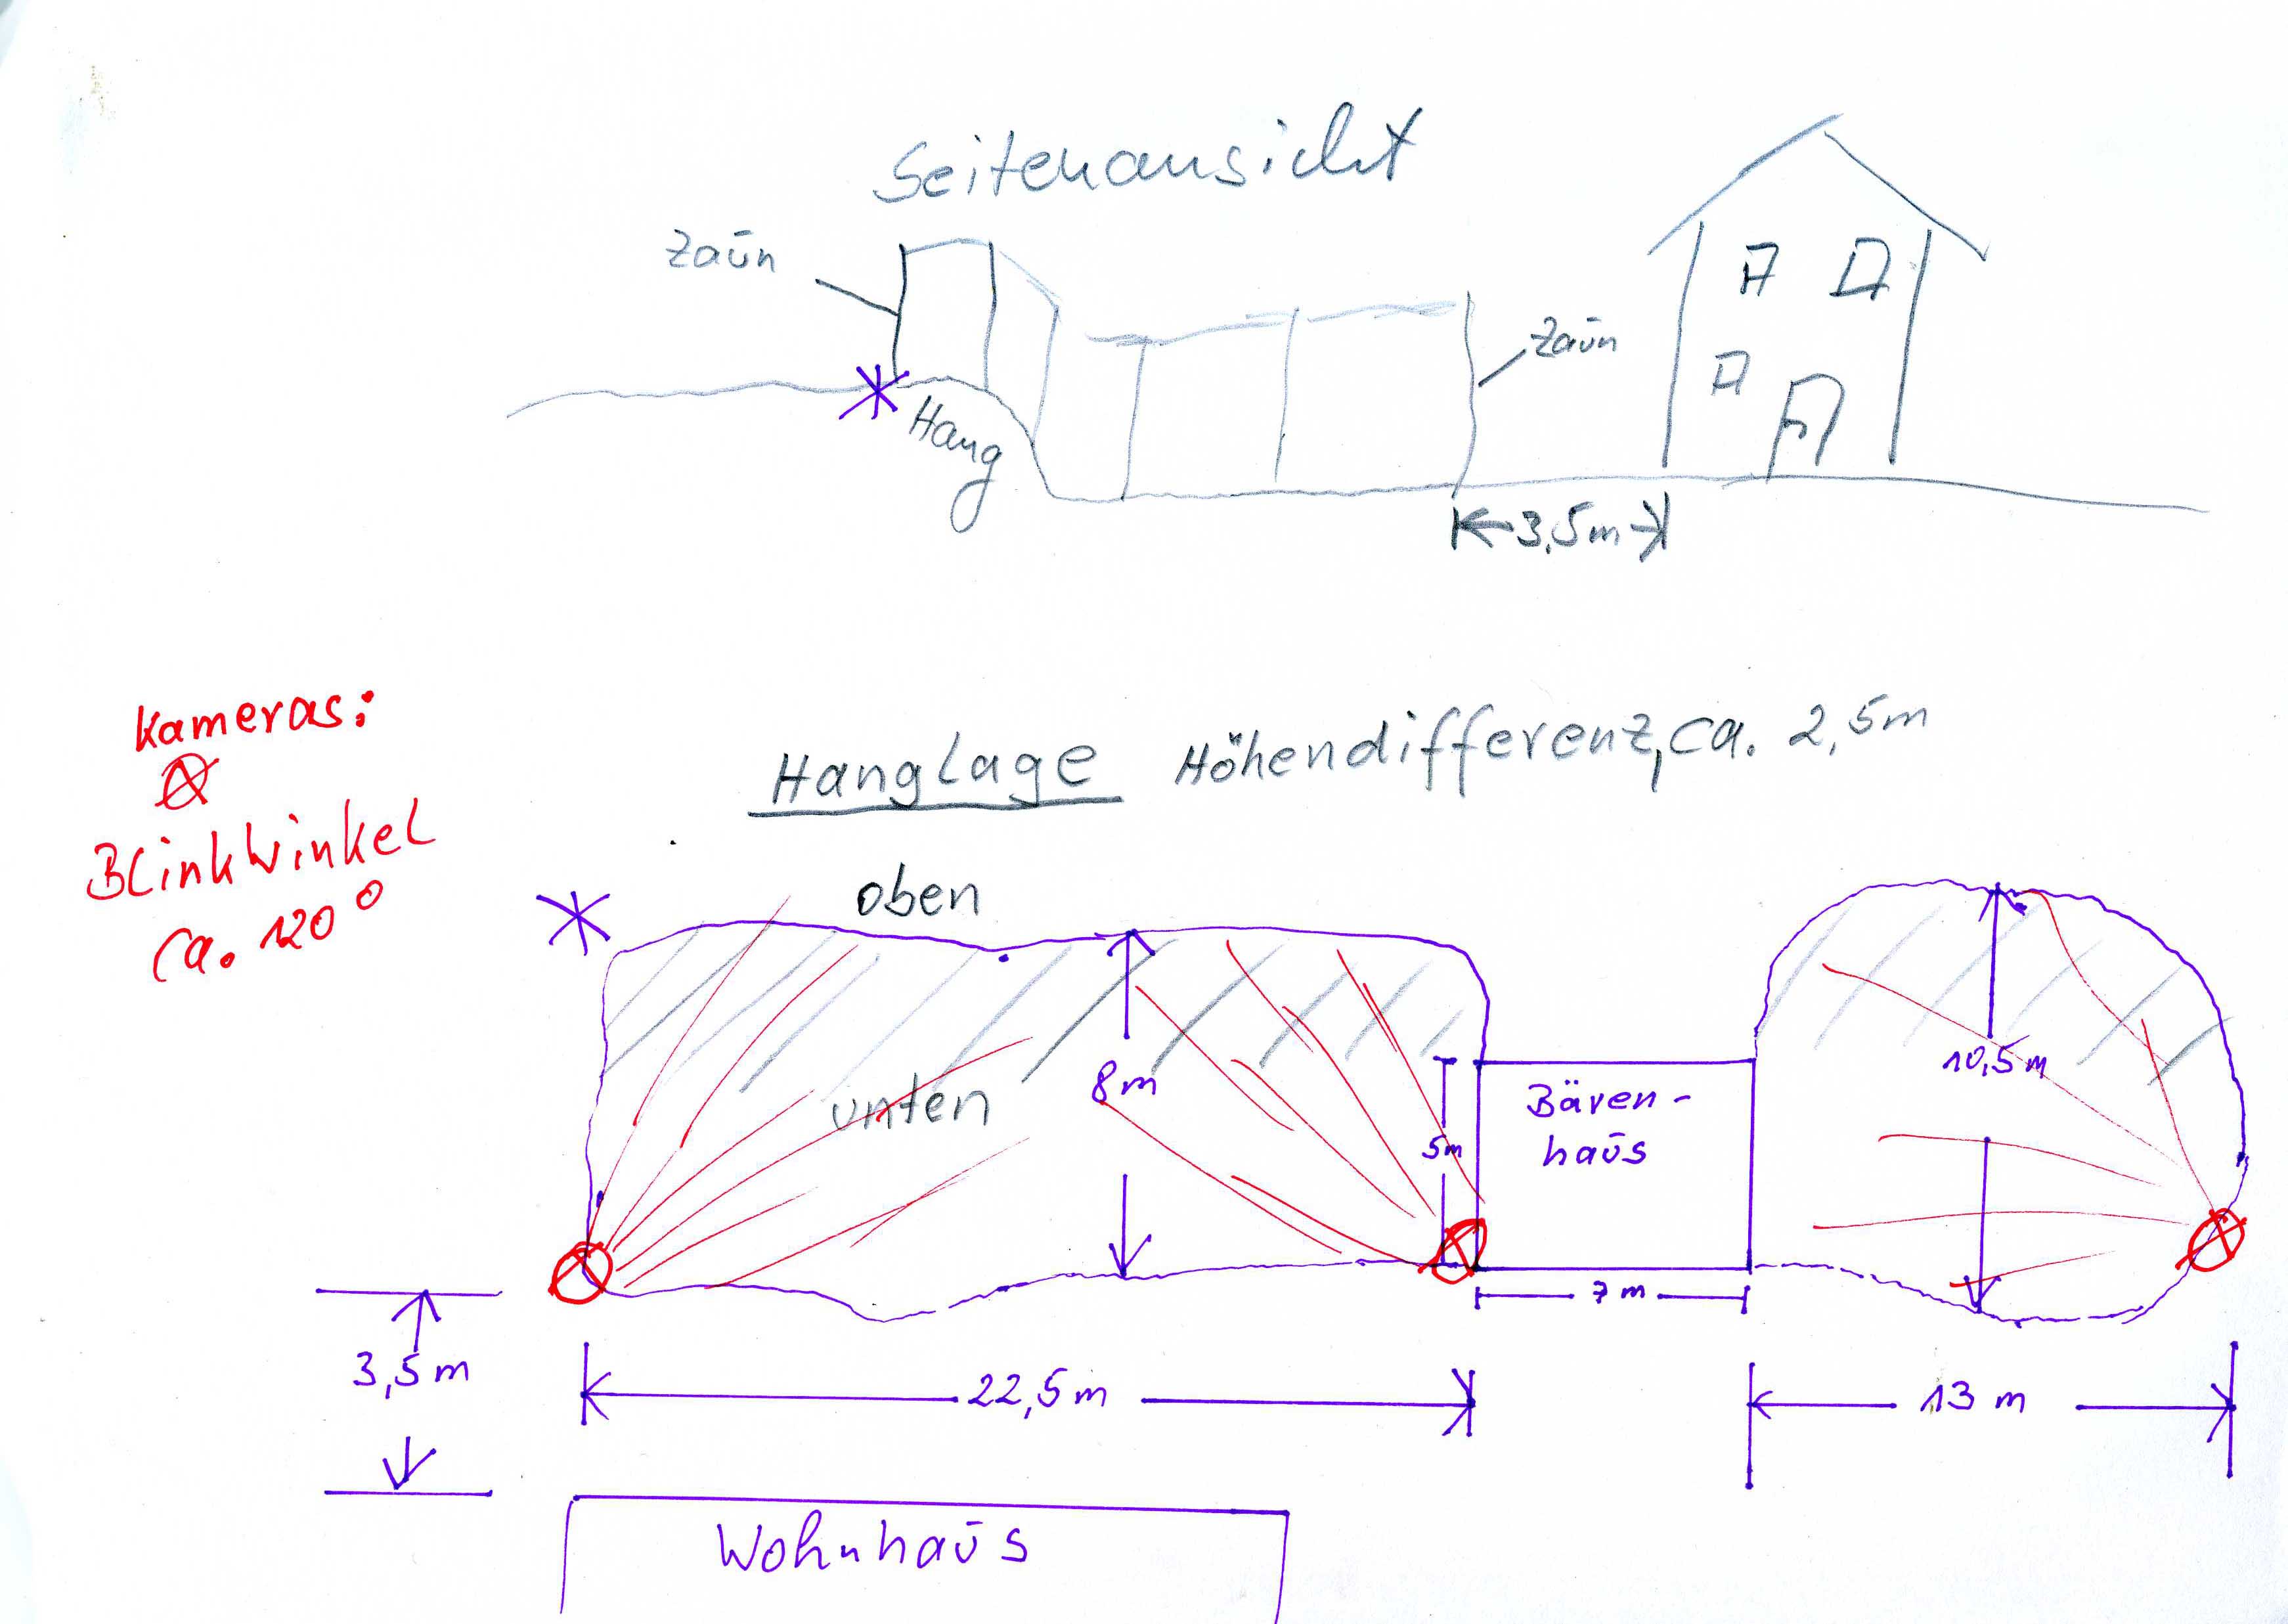 Seitenansicht
Zaun
Zaun
Hang
3,5m
Kameras:
Blinkwinkel
ca. 120°
Hanglage Höhendifferenz, ca. 2,5m
oben
unten
8m
5m
Bären-
haus
10,5m
7 m
3,5m
22,5m
13 m
Wohnhaus